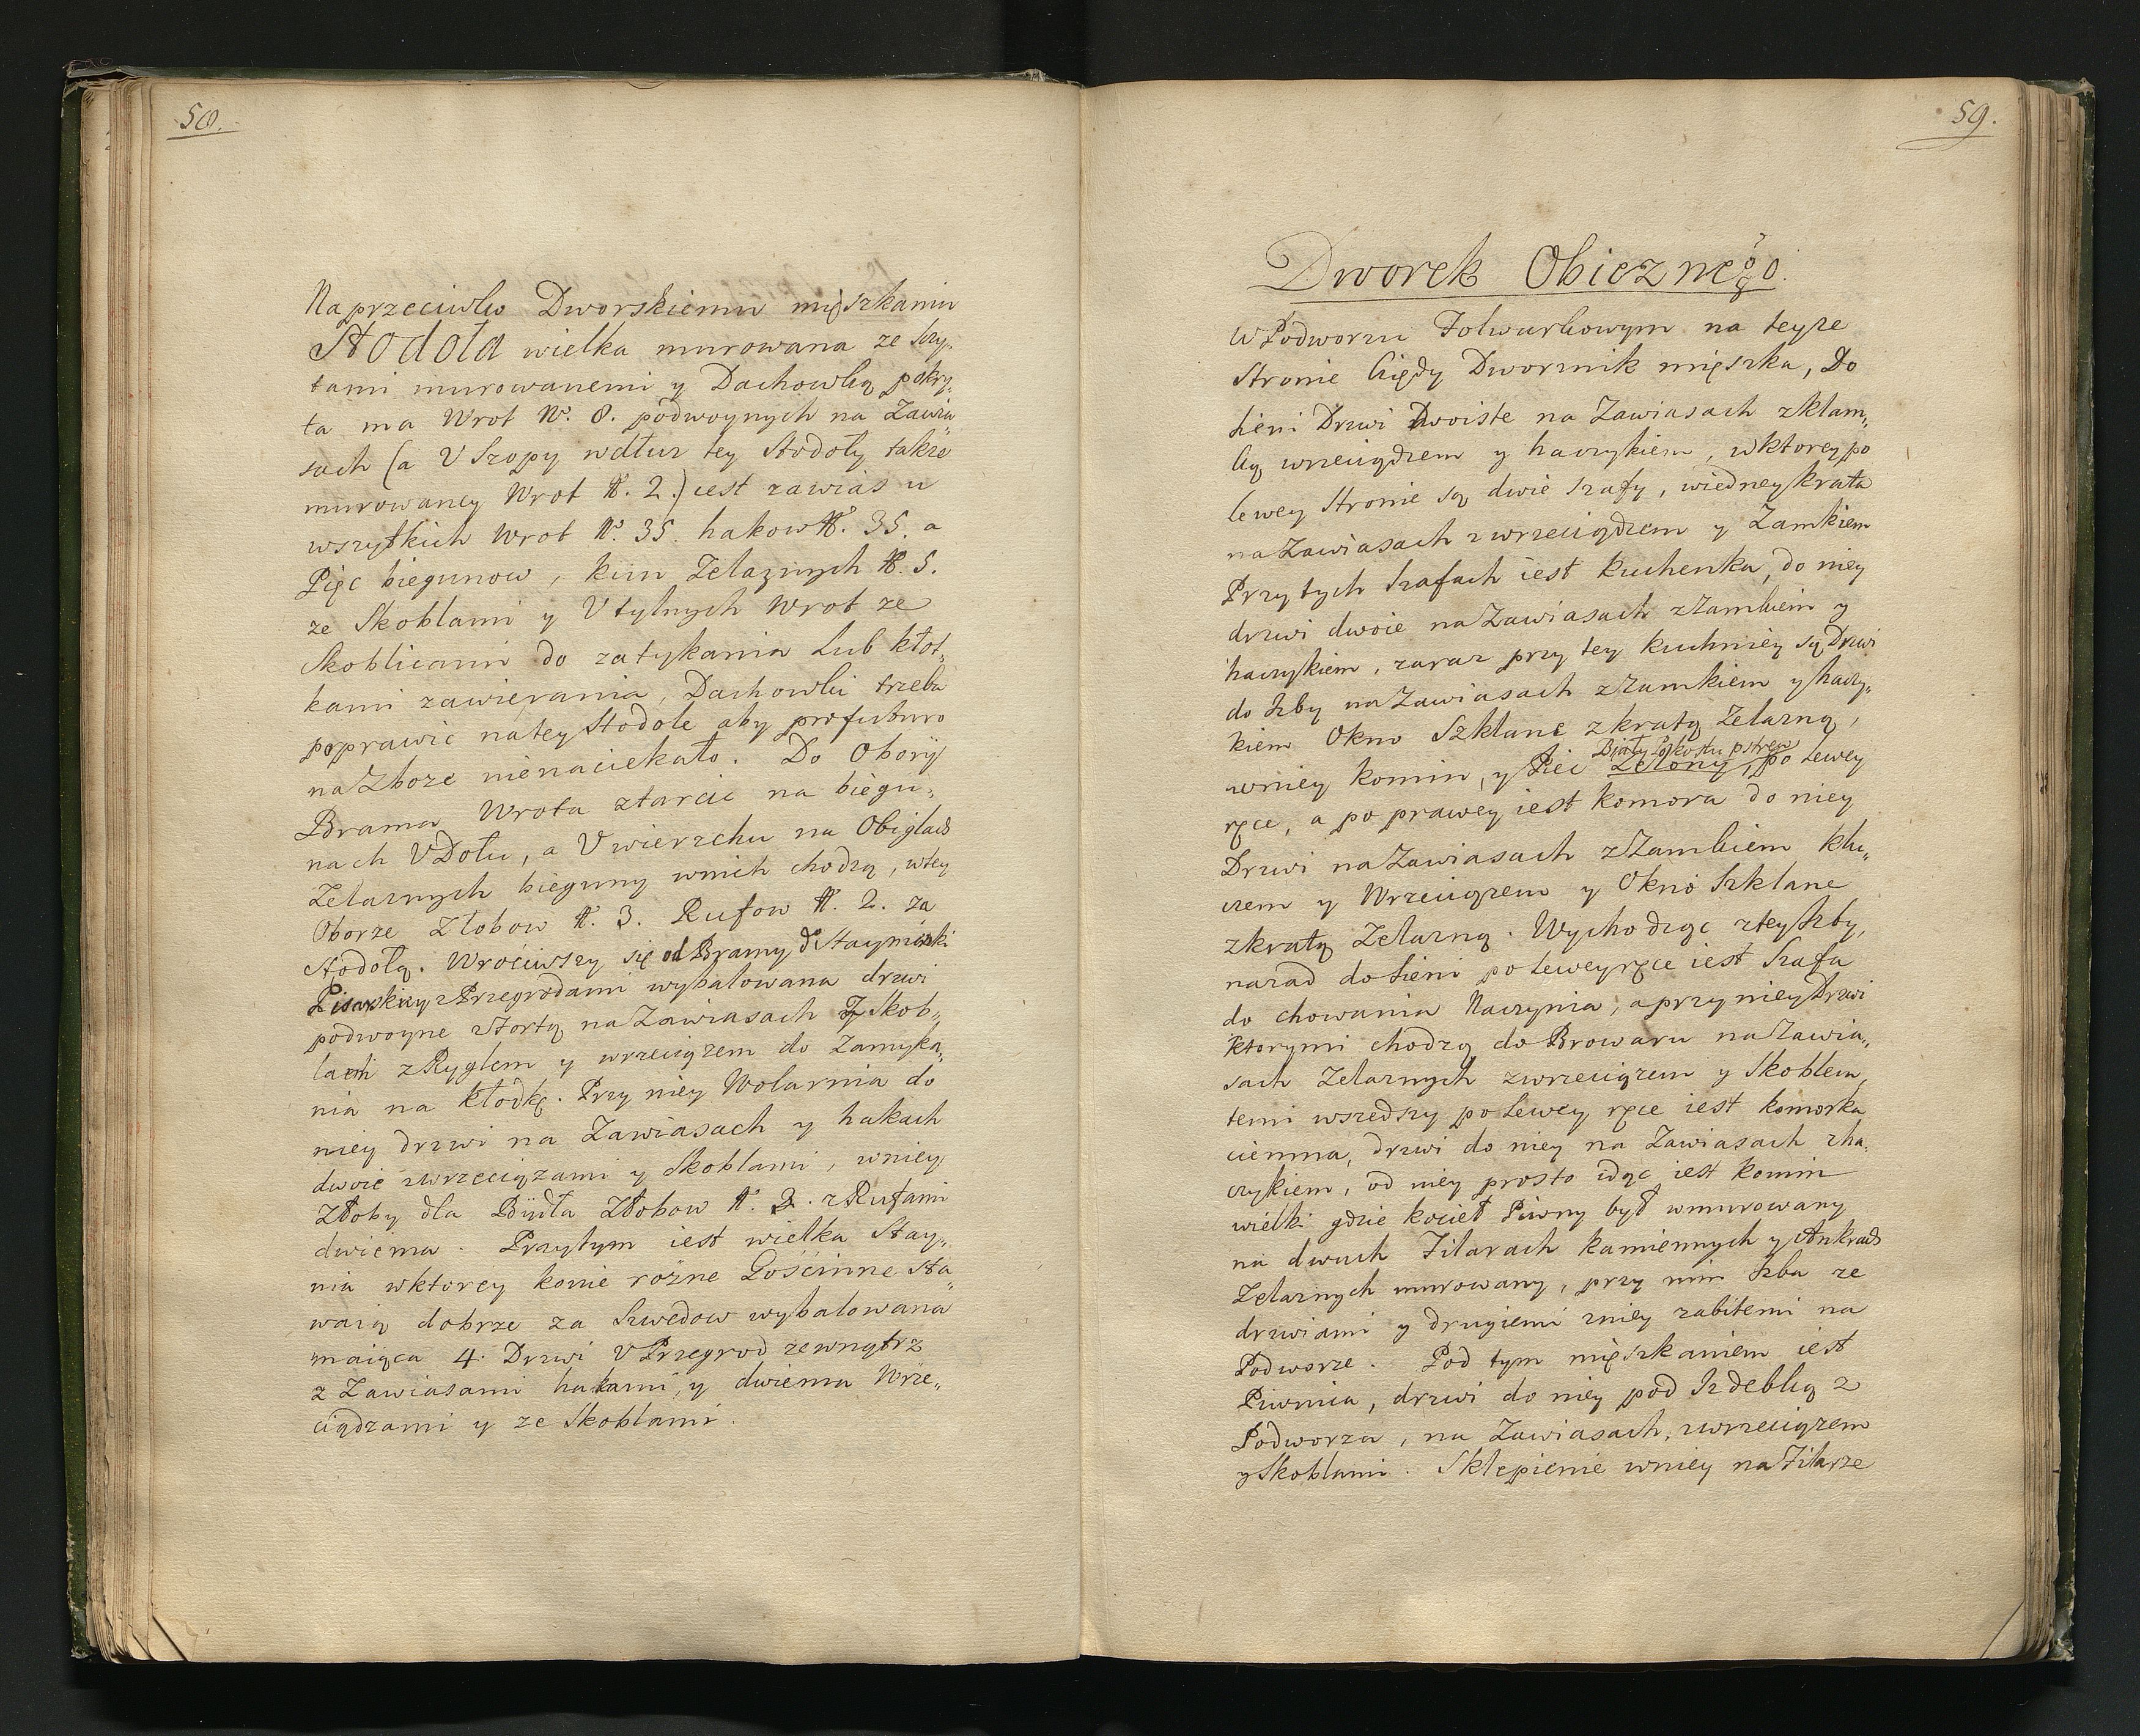 58.
Naprzeciwko Dworskiemu mięszkaniu
Stodoła wielka murowana ze szczy„
tami murowanemi y Dachowką pokry„
ta ma Wrot N. 8. podwoynych na Zawia„
sach (a V Szopy wdłuz tey Stodoły także
murowaney Wrot N. 2.) iest zawias u
wszytkich Wrot N. 35. hakow N. 35. a
Pięc biegunow, kun Zelaznych N. 5.
ze Skoblami y V tylnych Wrot ze
Skoblicami do zatykania Lub kłot„
kami zawierania, Dachowki trzeba
poprawić natey Stodole aby profuturo
na Zboze nienaciekało. Do Obory
Brama Wrota ztarcic na biegu„
nach VDołu, a Vwierzchu na Obiglach
Zelaznych bieguny wnich chodzą, wtey
Oborze Złobow N. 3. Rufow N. 2. za
Stodołą. Wrociwszy się od Bramy do Stayninki
Pisarskiey zPrzegrodami wybalowana drzwi
podwoyne ztortą naZawiasach z Skob„
lami zRyglem y wrzeciązem do Zamyka„
nia na kłodkę. Przy niey Wolarnia do
niey drzwi na Zawiasach y hakach
dwoie zwrzeciązami y Skoblami, wniey
Złoby dla Bydła Złobow N. 2. zRufami
dwiema. Przytym iest wielka Stay„
nia wktorey konie rożne Gościnne sta„
waią dobrze za Szwedow wybalowana
maiąca 4. Drzwi V Przegrod zewnątrz
z Zawiasami hakami, y dwiema Wrze„
ciądzami y ze Skoblami.
59.
Dworek Obieznego.
WPodworzu Folwarkowym na teyze
Stronie kiędy Dwornik mięszka, Do
Sieni Drzwi Dwoiste na Zawiasach zklam„
ką wrzeciądzem y haczykiem, wktorey po
lewey Stronie są dwie szafy, wiedney krata
na Zawiasach zwrzeciądzem y Zamkiem
Przy tych Szafach iest kuchenka, do niey
drzwi dwoie na Zawiasach zZamkiem y
haczykiem, zaraz przy tey kuchniey są Drzwi
do Izby na Zawiasach zZamkiem y haczy„
kiem Okno Szklane zkratą Zelazną,
Biały Łokostu pstren
wniey komin, y Piec Zelony, po Lewey
ręce, a po prawey iest komora do niey
Drzwi naZawiasach zZamkiem klu„
czem y Wrzeciązem y Okno Szklane
zkratą Zelazną. Wychodząc zteyIzby,
nazad doSieni po leweyręce iest Szafa
do chowania Naczynia, aprzy niey Drzwi
ktorymi chodzą do Browaru na Zawia„
sach Zelaznych zwrzeciązem y Skoblem,
temi wszedszy po Lewey ręce iest komorka
ciemna, drzwi do niey na Zawiasach zha„
czykiem, od niey prosto idąc iest komin
wielki gdzie kocieł Piwny był wmurowany
na dwuch Filarach kamiennych y Ankrach
Zelaznych murowany, przy nim Izba ze
drzwiami y drugiemi zniey zabitemi na
Podworze. Pod tym mięszkaniem iest
Piwnia, drzwi do niey pod Izdebką z
Podworza, na Zawiasach, zwrzeciązem
y Skoblami. Sklepienie wniey na Filarze